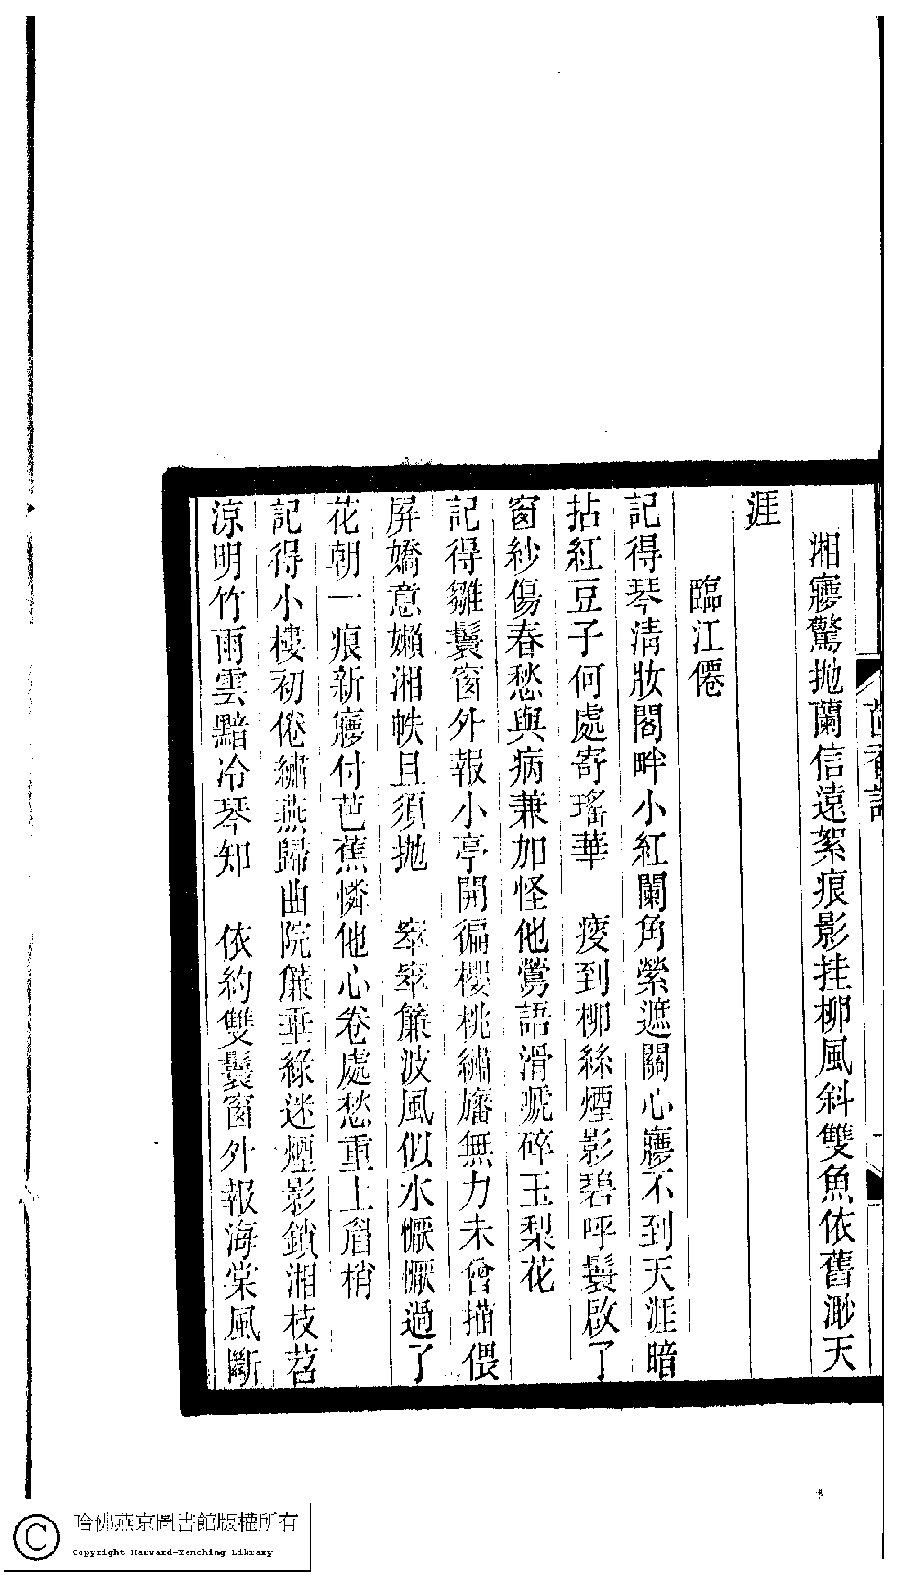 湘㝱驚拋蘭信遠絮痕影挂柳風斜雙魚依舊渺天
涯
臨江僊
記得琴清妝閣畔小紅闌角縈遮關心㝱不到天涯暗
拈紅豆子何處寄瑤華　痠到柳絲煙影碧呼鬟啟了
窗紗傷春愁與病兼加怪他鶯語滑唬碎玉梨花
記得雛鬟窗外報小亭開徧櫻桃繡牕無力未曾描偎
屏嬌意嬾湘帙且須拋　窣窣簾波風似水懨懨過了
花朝一痕新㝱付芭蕉憐他心卷處愁重上眉梢
記得小樓初倦繡燕歸曲院簾垂綠迷煙影鎖湘枝苔
涼明竹雨雲黯冷琴知　依約雙鬟窗外報海棠風斷
哈佛燕京圖書館版權所有
Copyright Harvard-Yenching Library